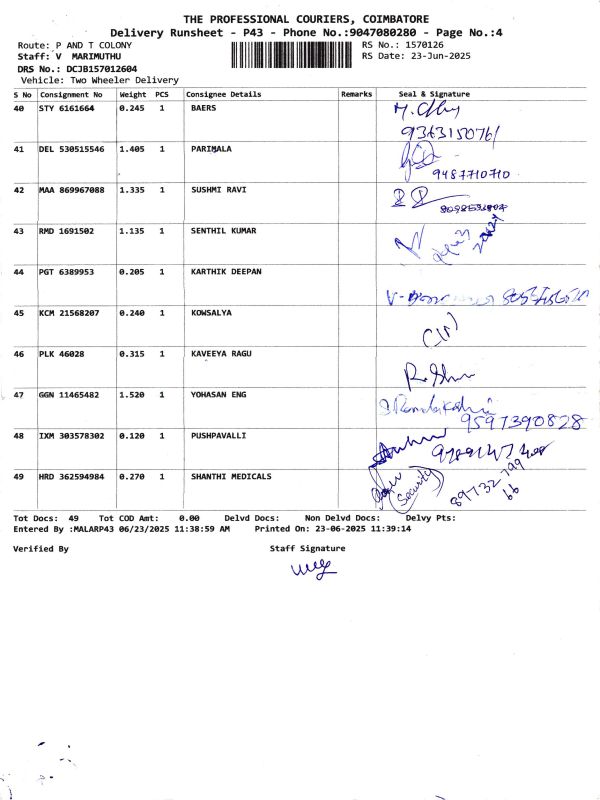 THE PROFESSIONAL COURIERS, COIMBATORE
Delivery Runsheet - P43 - Phone No.:9047080280 - Page No.:4
Route: P AND T COLONY RS No.: 1570126
Staff: V MARIMUTHU RS Date: 23-Jun-2025
DRS No.: DCJB157012604
Vehicle: Two Wheeler Delivery
S No Consignment No Weight PCS Consignee Details Remarks Seal & Signature
40 STY 6161664 0.245 1 BAERS
9363150761
41 DEL 530515546 1.405 1 PARIMALA
9487710710
42 MAA 869967088 1.335 1 SUSHMI RAVI
43 RMD 1691502 1.135 1 SENTHIL KUMAR
44 PGT 6389953 0.205 1 KARTHIK DEEPAN
45 KCM 21568207 0.240 1 KOWSALYA
46 PLK 46028 0.315 1 KAVEEYA RAGU
47 GGN 11465482 1.520 1 YOHASAN ENG
9597390828
48 IXM 303578302 0.120 1 PUSHPAVALLI
49 HRD 362594984 0.270 1 SHANTHI MEDICALS
Security
89732 799
66
Tot Docs: 49 Tot COD Amt: 0.00 Delvd Docs: Non Delvd Docs: Delvy Pts:
Entered By :MALARP43 06/23/2025 11:38:59 AM Printed On: 23-06-2025 11:39:14
Verified By Staff Signature